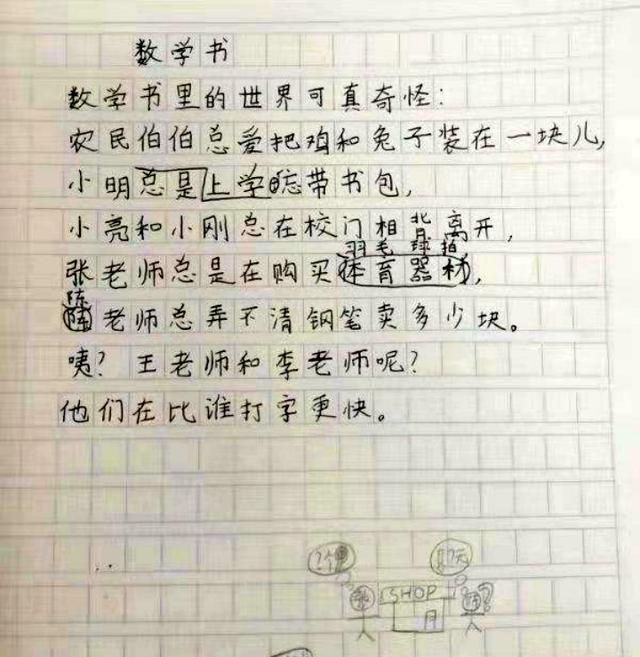 数学书
数学书里的世界可真奇怪：
农民伯伯总爱把鸡和兔子装在一块儿,
小明总是上学忘带书包,
小亮和小刚总在校门相背离开,
羽毛球拍
张老师总是在购买体育器材,
陈
老师总弄不清钢笔卖多少块。
咦？王老师和李老师呢？
他们在比谁打字更快。
SHOP